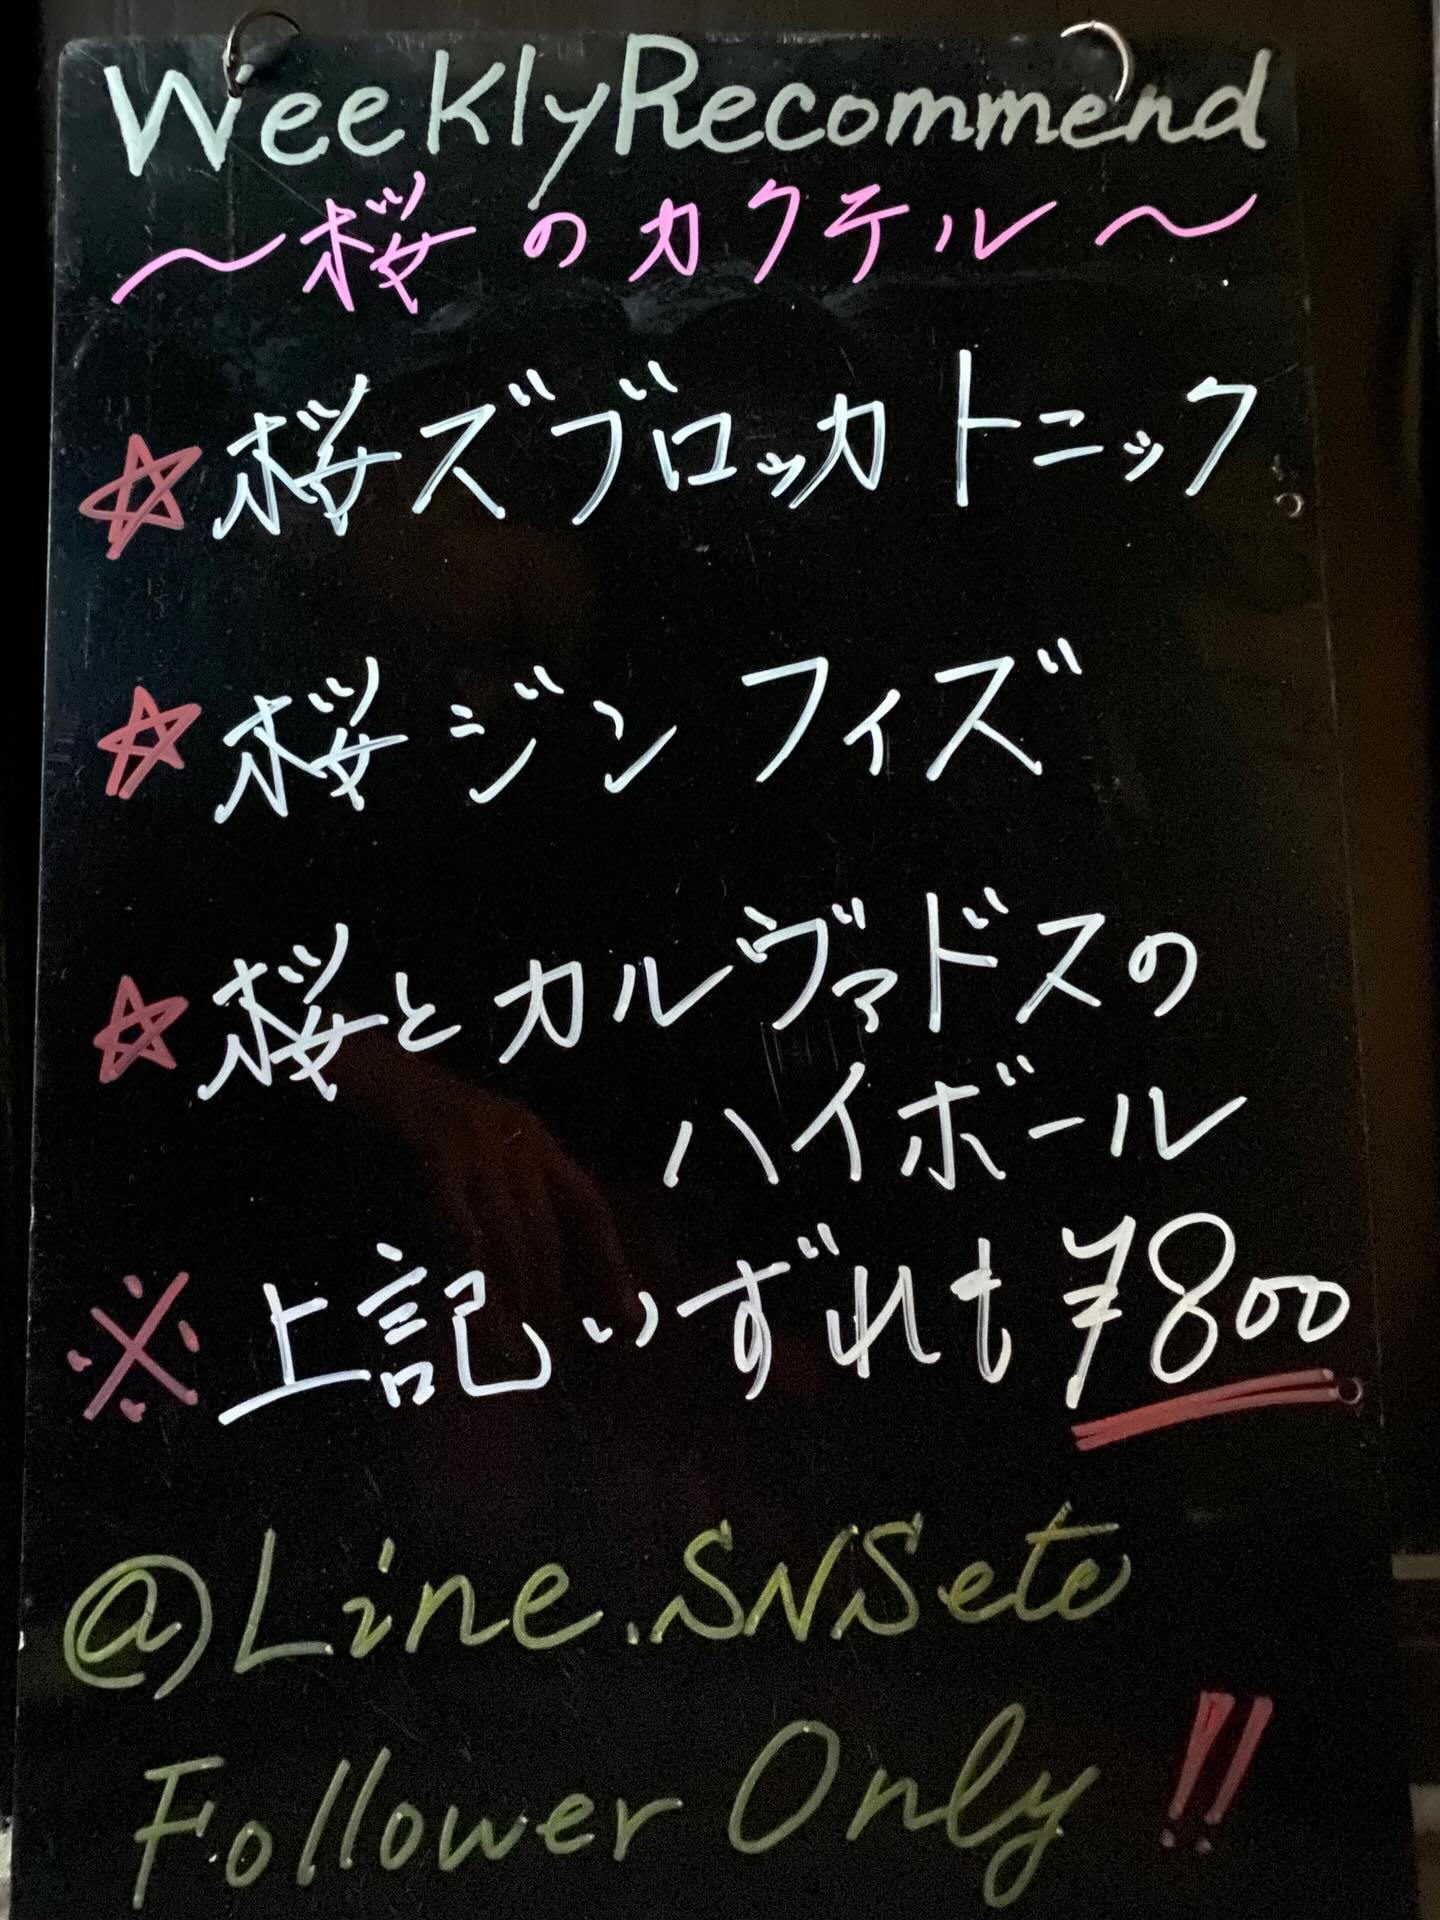 WeeklyRecommend
〜桜のカクテル〜
☆桜ズブロッカトニック
☆桜ジンフィズ
☆桜とカルヴァドスの
ハイボール
※上記いずれも¥800
@Line.SNSetc
Follower Only!!